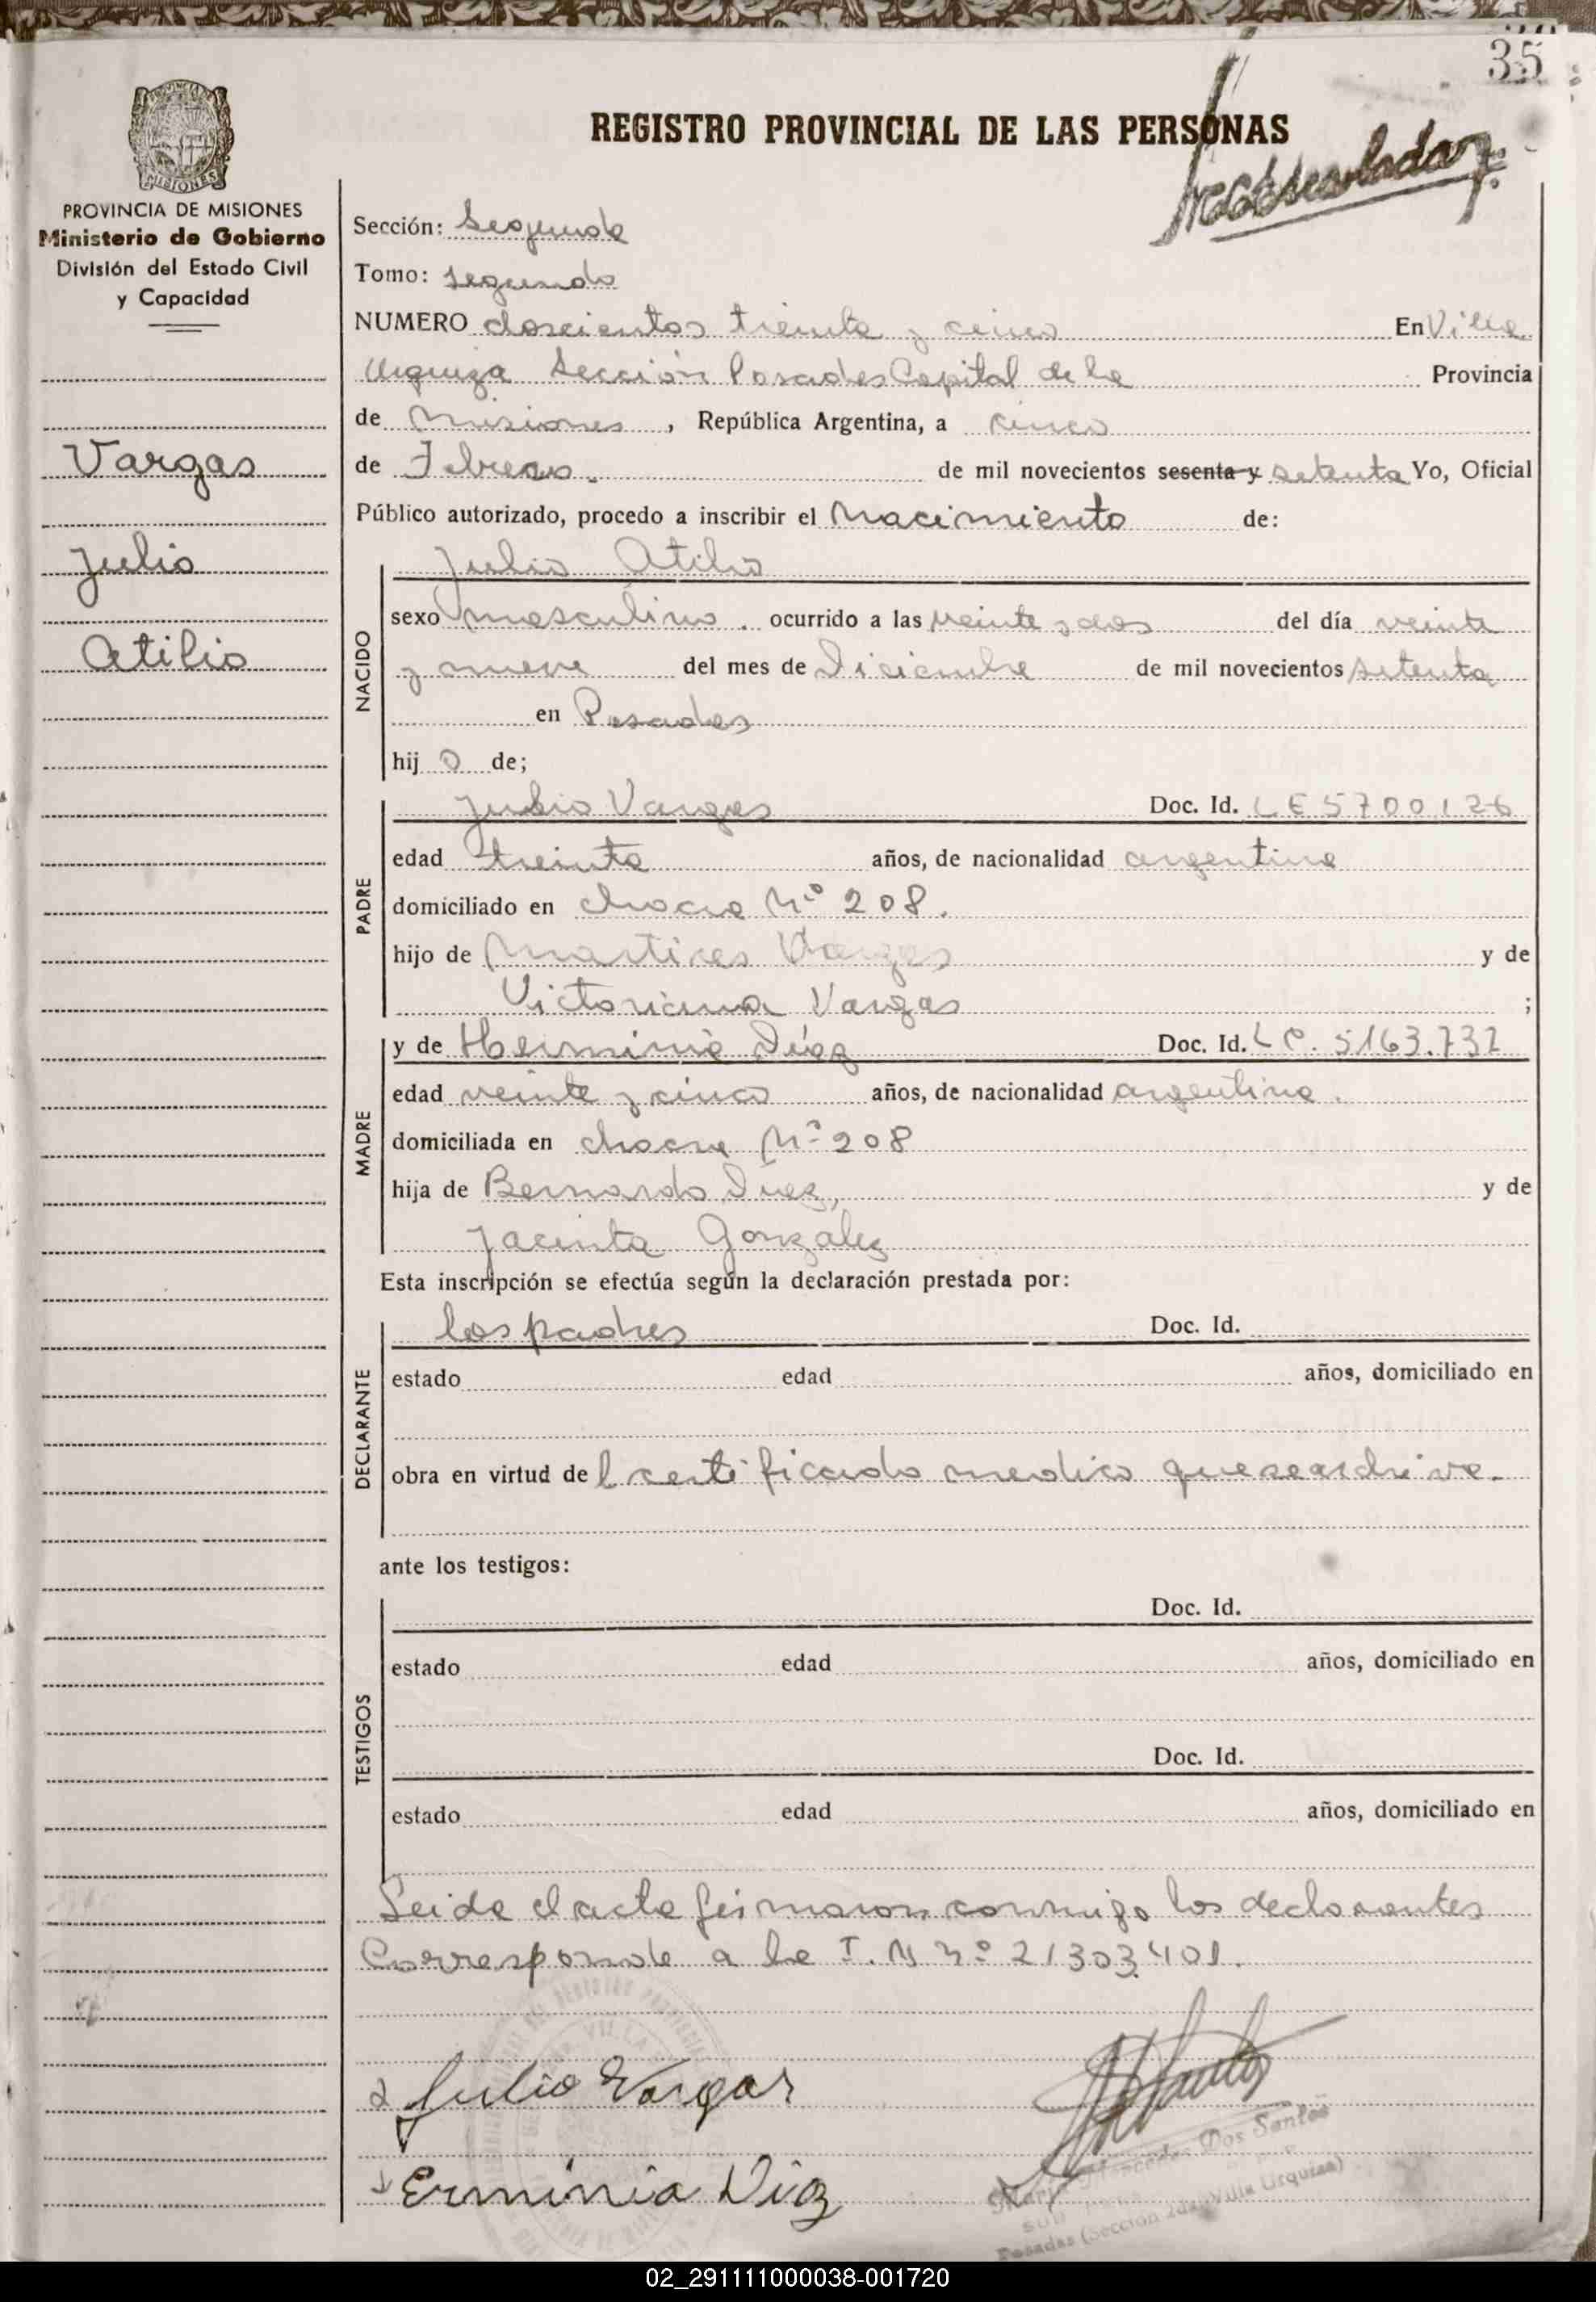 35
REGISTRO PROVINCIAL DE LAS PERSONAS
MISIONES
PROVINCIA DE MISIONES
Ministerio de Gobierno
División del Estado Civil
y Capacidad
Vargas
Julio
Atilio
Sección: Segunda
Tomo: segundo
NUMERO doscientos treinta y cinco En Villa
Urquiza Sección Posadas Capital de la Provincia
de Misiones, República Argentina, a cinco
de Febrero. de mil novecientos sesenta y setenta Yo, Oficial
Público autorizado, procedo a inscribir el Nacimiento de:
NACIDO
Julio Atilio
sexo masculino. ocurrido a las veinte y dos del día veinte
y nueve del mes de Diciembre de mil novecientos setenta
en Posadas
hijo de;
PADRE
Julio Vargas Doc. Id. LE 5700126
edad treinta años, de nacionalidad argentina
domiciliado en chacra Nº 208.
hijo de Vargas y de
Victoriana Vargas ;
MADRE
y de Herminia Díez Doc. Id. LC. 5163.732
edad veinte y cinco años, de nacionalidad argentina.
domiciliada en chacra Nº 208
hija de Bernardo Díez, y de
Jacinta González
Esta inscripción se efectúa según la declaración prestada por:
DECLARANTE
los padres Doc. Id.
estado edad años, domiciliado en
obra en virtud del certificado medico que se archiva.
ante los testigos:
TESTIGOS
Doc. Id.
estado edad años, domiciliado en
Doc. Id.
estado edad años, domiciliado en
Leida el acta firmaron conmigo los declarantes
Corresponde a la I. N Nº 21303.401.
Julio Vargas
Erminia Diez
Dos Santos
Posadas (Sección 2da. Villa Urquiza)
02_291111000038-001720